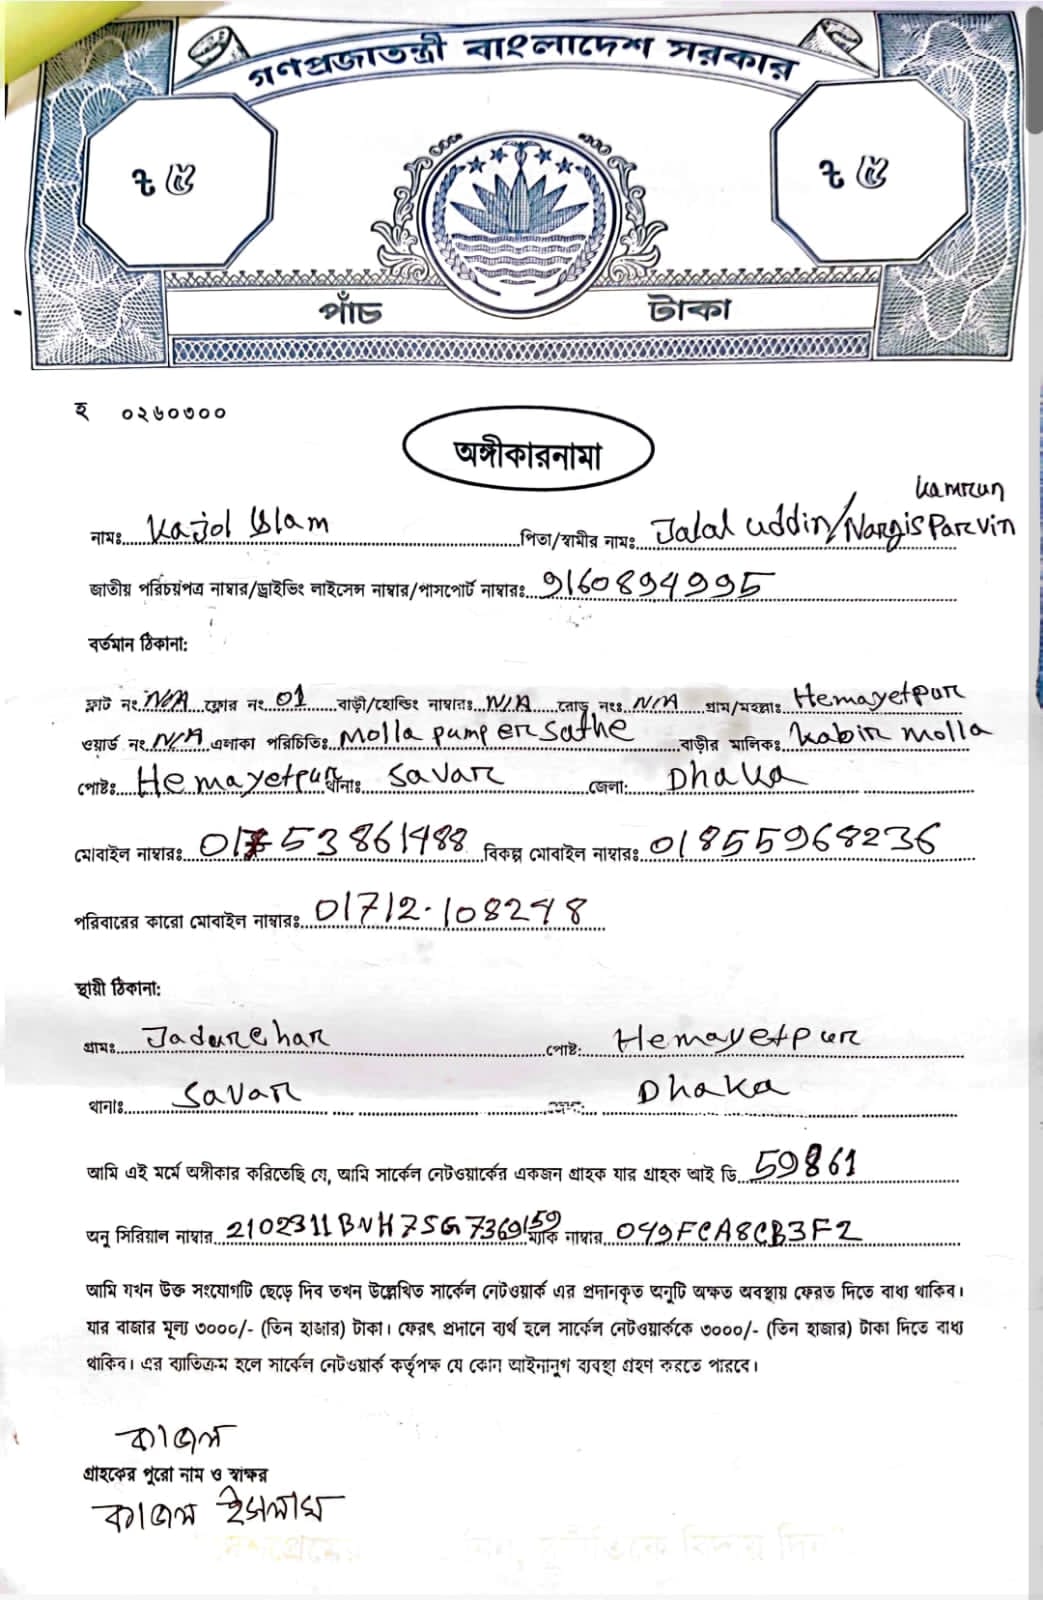 গণপ্রজাতন্ত্রী বাংলাদেশ সরকার
৳ ৫ ৳ ৫
পাঁচ টাকা
হ ০২৬০৩০০
অঙ্গীকারনামা
Kamrun
নামঃ Kajol Islam পিতা/স্বামীর নামঃ Jalal uddin/Nargis Parvin
জাতীয় পরিচয়পত্র নাম্বার/ড্রাইভিং লাইসেন্স নাম্বার/পাসপোর্ট নাম্বারঃ 9160894995
বর্তমান ঠিকানা:
ফ্লাট নং N/A ফ্লোর নং 01 বাড়ী/হোল্ডিং নাম্বারঃ N/A রোড নংঃ N/A গ্রাম/মহল্লাঃ Hemayetpur
ওয়ার্ড নং N/A এলাকা পরিচিতিঃ Molla pump er sathe বাড়ীর মালিকঃ Kabir molla
পোষ্টঃ Hemayetpur থানাঃ Savar জেলা: Dhaka
মোবাইল নাম্বারঃ 01753861488 বিকল্প মোবাইল নাম্বারঃ 01855968236
পরিবারের কারো মোবাইল নাম্বারঃ 01712-108248
স্থায়ী ঠিকানা:
গ্রামঃ Jadurchar পোষ্ট: Hemayetpur
থানাঃ Savar জেলা: Dhaka
আমি এই মর্মে অঙ্গীকার করিতেছি যে, আমি সার্কেল নেটওয়ার্কের একজন গ্রাহক যার গ্রাহক আই ডি 59861
অনু সিরিয়াল নাম্বার 2102311BNH7SG7369159 ম্যাক নাম্বার 049FCA8CB3F2
আমি যখন উক্ত সংযোগটি ছেড়ে দিব তখন উল্লেখিত সার্কেল নেটওয়ার্ক এর প্রদানকৃত অনুটি অক্ষত অবস্থায় ফেরত দিতে বাধ্য থাকিব।
যার বাজার মূল্য ৩০০০/- (তিন হাজার) টাকা। ফেরৎ প্রদানে ব্যর্থ হলে সার্কেল নেটওয়ার্ককে ৩০০০/- (তিন হাজার) টাকা দিতে বাধ্য
থাকিব। এর ব্যাতিক্রম হলে সার্কেল নেটওয়ার্ক কর্তৃপক্ষ যে কোন আইনানুগ ব্যবস্থা গ্রহণ করতে পারবে।
কাজল
গ্রাহকের পুরো নাম ও স্বাক্ষর
কাজল ইসলাম